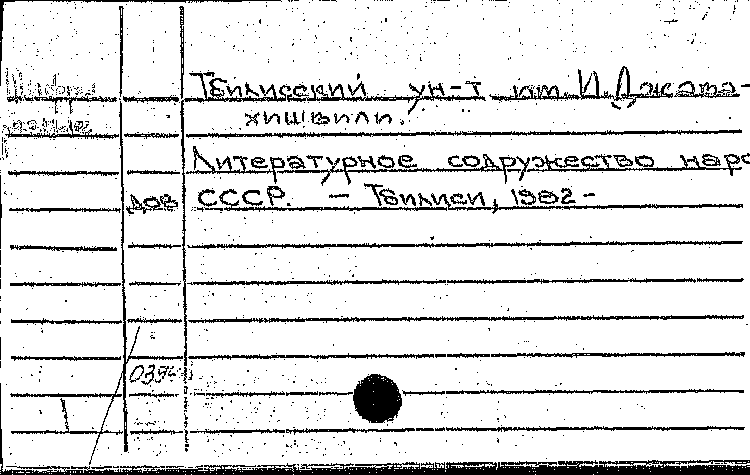 Тбилисский ун-т им. И. Джава-
хишвили.
Литературное содружество наро
дов СССР. – Тбилиси, 1982 –